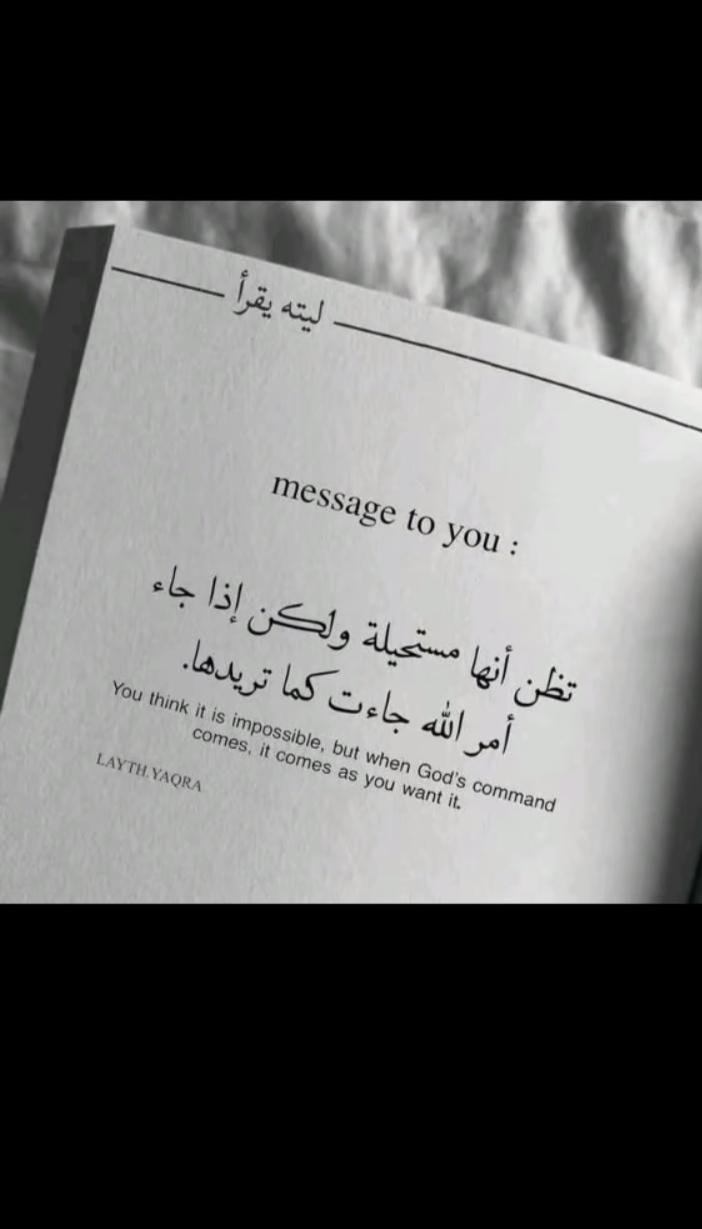 ليته يقرأ
message to you :
تظن أنها مستحيلة ولكن إذا جاء
أمر الله جاءت كما تريدها.
You think it is impossible, but when God's command
comes, it comes as you want it.
LAYTH.YAQRA